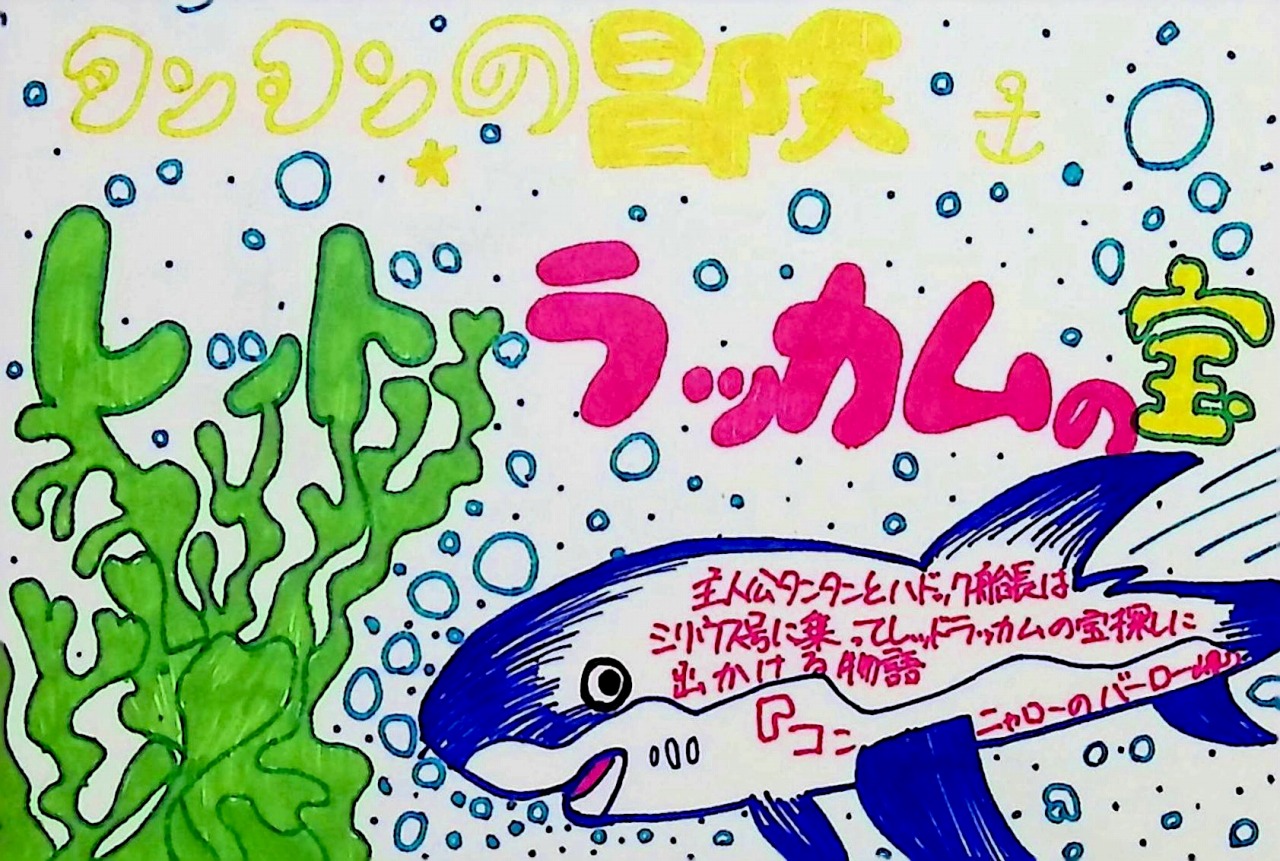 タンタンの冒険
レッド
ラッカムの宝
主人公タンタンとハドック船長は
シリウス号に乗ってレッドラッカムの宝探しに
出かける物語
ニャローのバーロー